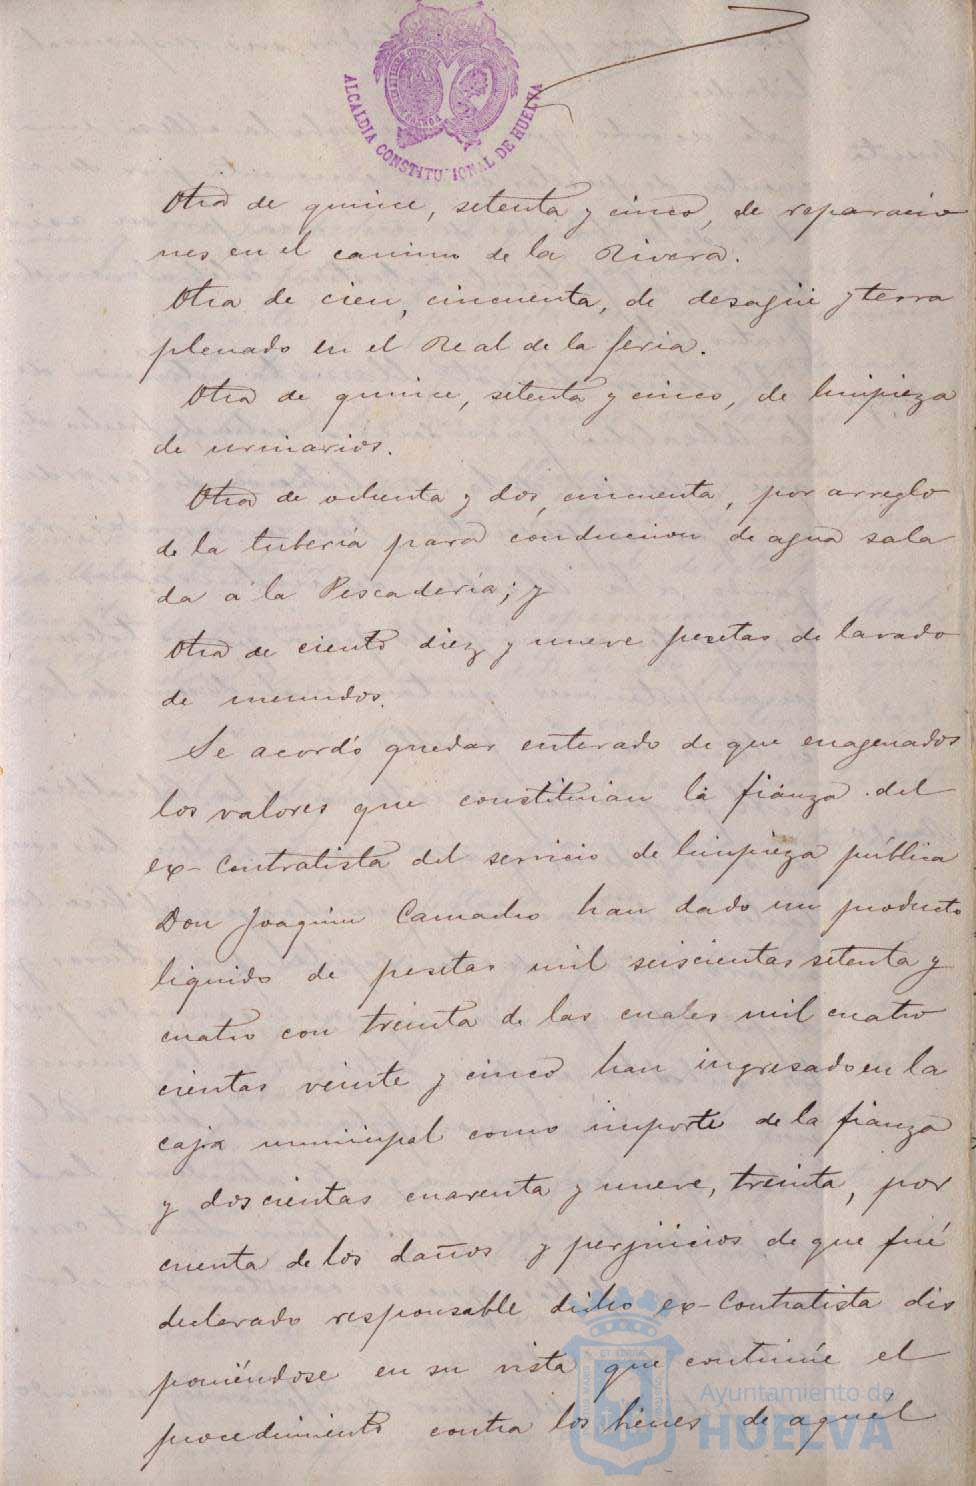 ALCALDIA CONSTITUCIONAL DE HUELVA
Otra de quince, setenta y cinco, de reparacio
nes en el camino de la Rivera.
Otra de cien, cincuenta, de desagüe y terra
plenado en el Real de la feria.
Otra de quince, setenta y cinco, de limpieza
de urinarios.
Otra de ochenta y dos, cincuenta, por arreglo
de la tubería para conduccion de agua sala
da á la Pescadería; y
Otra de ciento diez y nueve pesetas de lavado
de menudos.
Se acordó quedar enterado de que enagenados
los valores que constituian la fianza del
ex-Contratista del servicio de limpieza pública
Don Joaquin Camacho han dado un producto
liquido de pesetas mil seiscientas setenta y
cuatro con treinta de las cuales mil cuatro
cientas veinte y cinco han ingresado en la
caja municipal como importe de la fianza
y doscientas cuarenta y nueve, treinta, por
cuenta de los daños y perjuicios de que fué
declarado responsable dicho ex-Contratista dis
poniéndose en su vista que continúe el
procedimiento contra los bienes de aquél
Ayuntamiento de
HUELVA